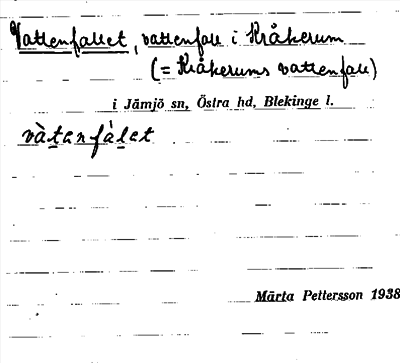 Vattenfallet, vattenfall i Kråkerum
(= Kråkerums vattenfall)
i Jämjö sn, Östra hd, Blekinge l.
vàtenfàlet
Märta Pettersson 1938